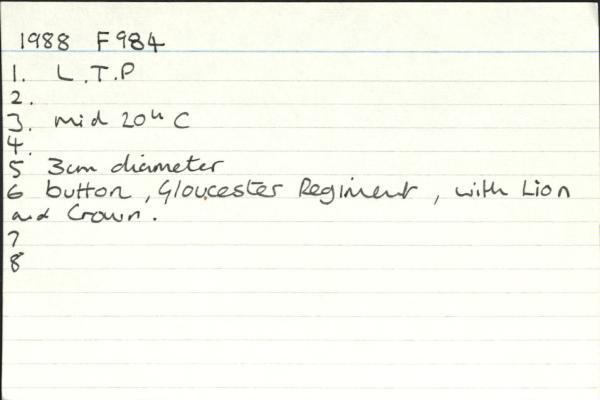 1988 F984
1. L.T.P
2.
3. mid 20th C
4.
5 3cm diameter
6 button, Gloucester Regiment, with Lion
and Crown.
7
8